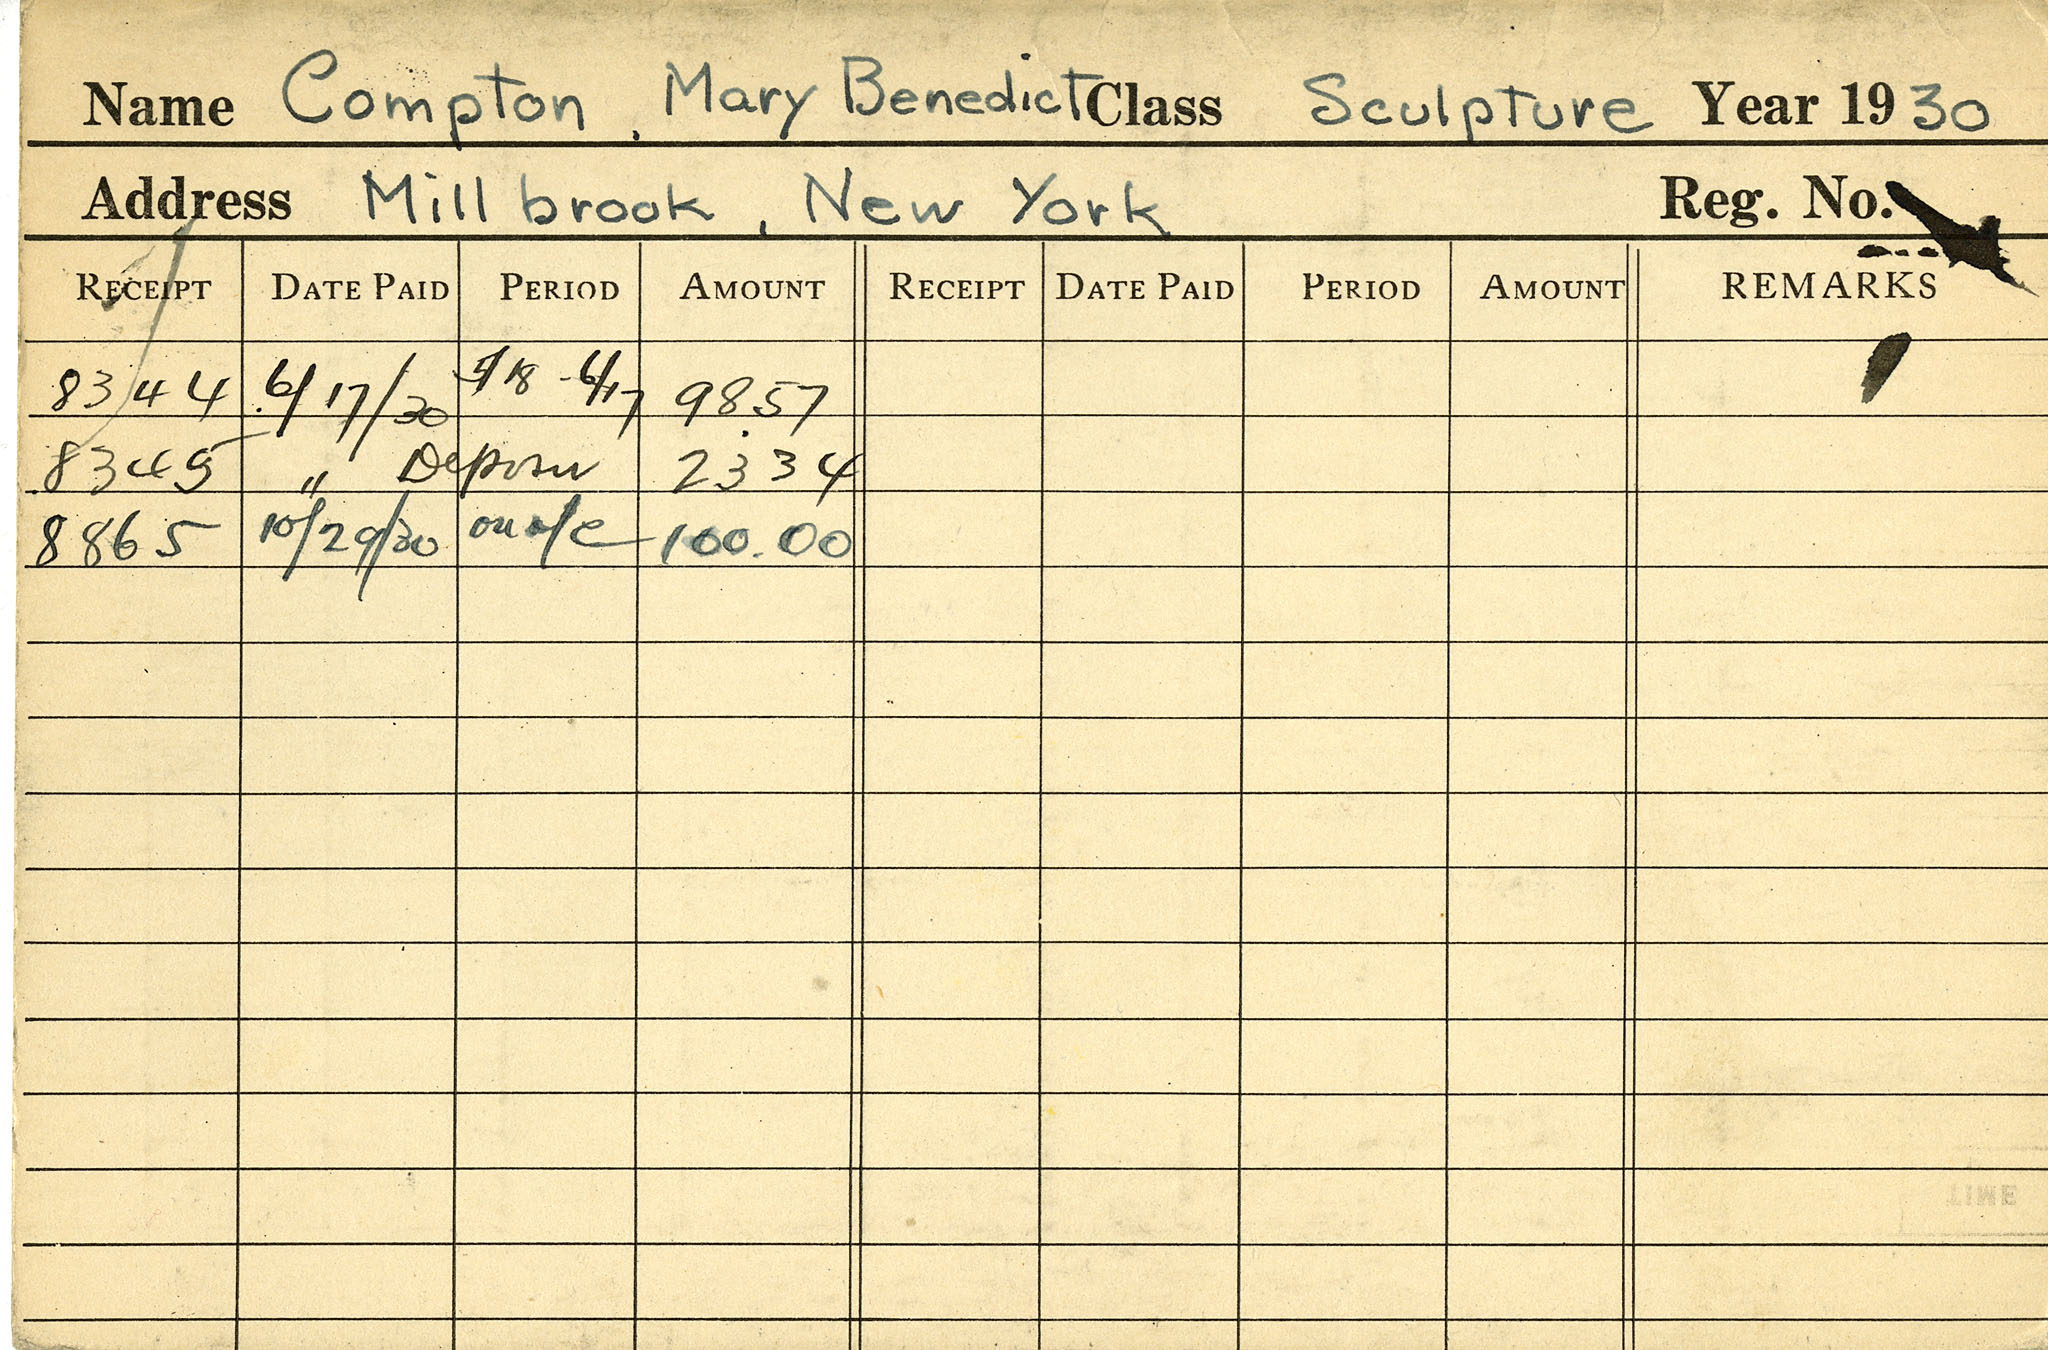 Name Compton, Mary Benedict Class Sculpture Year 1930
Address Millbrook, New York Reg. No.
RECEIPT DATE PAID PERIOD AMOUNT RECEIPT DATE PAID PERIOD AMOUNT REMARKS
8344 6/17/30 5/18-6/17 98.57
8345 " Deposit 23.34
8865 10/29/30 on a/c 100.00
TIME